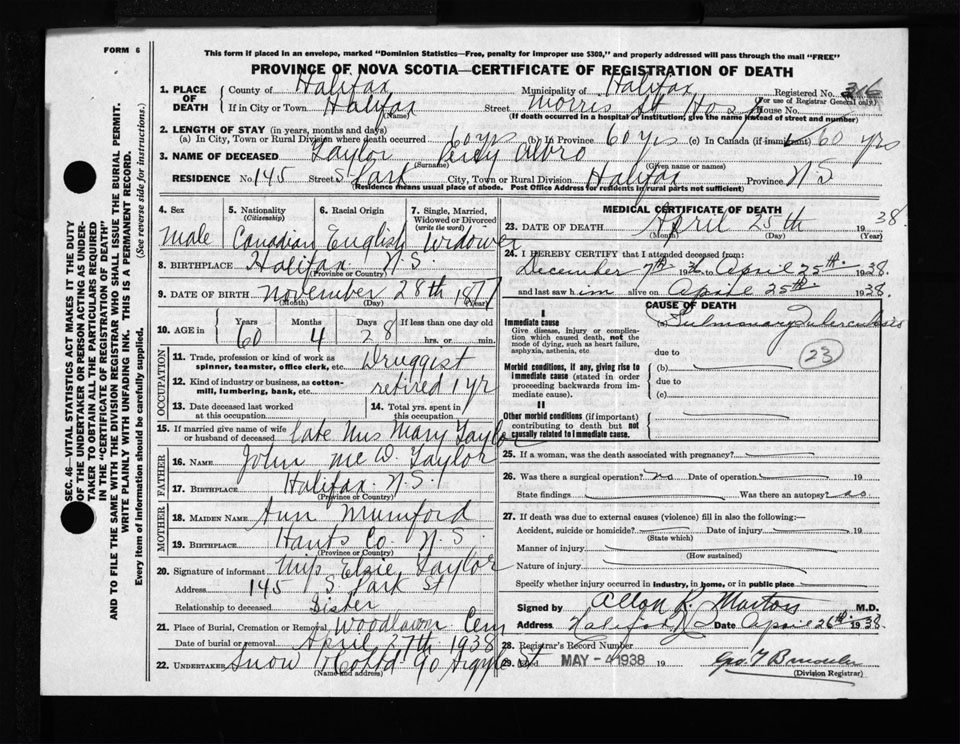 FORM 6
This form if placed in an envelope, marked "Dominion Statistics—Free, penalty for improper use $300," and properly addressed will pass through the mail "FREE"
PROVINCE OF NOVA SCOTIA—CERTIFICATE OF REGISTRATION OF DEATH
1. PLACE OF DEATH
County of Halifax Municipality of Halifax Registered No. 316
(For use of Registrar General only)
If in City or Town Halifax Street Morris St Hosp House No.
(Name) (If death occurred in a hospital or institution, give the name instead of street and number)
2. LENGTH OF STAY (in years, months and days)
(a) In City, Town or Rural Division where death occurred 60 yrs (b) In Province 60 yrs (c) In Canada (if immigrant) 60 yrs
3. NAME OF DECEASED Taylor Percy Albro
(Surname) (Given name or names)
RESIDENCE No. 145 Street S. Park City, Town or Rural Division Halifax Province N S
(Residence means usual place of abode. Post Office Address for residents in rural parts not sufficient)
4. Sex
Male
5. Nationality
(Citizenship)
Canadian
6. Racial Origin
English
7. Single, Married, Widowed or Divorced
(write the word)
Widower
8. BIRTHPLACE Halifax N S
(Province or Country)
9. DATE OF BIRTH November 28th 1877
(Month) (Day) (Year)
10. AGE in Years Months Days If less than one day old
60 4 28 hrs. or min.
OCCUPATION
11. Trade, profession or kind of work as spinner, teamster, office clerk, etc. Druggist
12. Kind of industry or business, as cotton-mill, lumbering, bank, etc. retired 1 yr
13. Date deceased last worked at this occupation
14. Total yrs. spent in this occupation
15. If married give name of wife or husband of deceased late Mrs Mary Taylor
FATHER
16. NAME John Mc W. Taylor
17. BIRTHPLACE Halifax N.S.
(Province or Country)
MOTHER
18. MAIDEN NAME Ann Mumford
19. BIRTHPLACE Hants Co. N. S.
(Province or Country)
20. Signature of informant Miss Elsie Taylor
Address 145 S. Park St
Relationship to deceased Sister
21. Place of Burial, Cremation or Removal Woodlawn Cem
Date of burial or removal April 27th 1938
22. UNDERTAKER Snow & Co Ltd 90 Argyle St
(Name and address)
MEDICAL CERTIFICATE OF DEATH
23. DATE OF DEATH April 25th 1938
(Month) (Day) (Year)
24. I HEREBY CERTIFY that I attended deceased from:
December 7th 1936 to April 25th 1938.
and last saw him alive on April 25th 1938.
CAUSE OF DEATH
I
Immediate cause
Give disease, injury or complication which caused death, not the mode of dying, such as heart failure, asphyxia, asthenia, etc
(a) Pulmonary Tuberculosis
23
due to
Morbid conditions, if any, giving rise to immediate cause (stated in order proceeding backwards from immediate cause).
(b)
due to
(c)
II
Other morbid conditions (if important) contributing to death but not causally related to immediate cause.
25. If a woman, was the death associated with pregnancy?
26. Was there a surgical operation? no Date of operation 19
State findings Was there an autopsy? no
27. If death was due to external causes (violence) fill in also the following:—
Accident, suicide or homicide? Date of injury 19
(State which)
Manner of injury
(How sustained)
Nature of injury
Specify whether injury occurred in industry, in home, or in public place
Signed by Allan R. Morton M.D.
Address Halifax N S Date April 26th 1938
28. Registrar's Record Number
29. Filed MAY -4 1938 19
(Division Registrar)
SEC. 46—VITAL STATISTICS ACT MAKES IT THE DUTY
OF THE UNDERTAKER OR PERSON ACTING AS UNDER-
TAKER TO OBTAIN ALL THE PARTICULARS REQUIRED
IN THE "CERTIFICATE OF REGISTRATION OF DEATH"
AND TO FILE THE SAME WITH THE DIVISION REGISTRAR WHO SHALL ISSUE THE BURIAL PERMIT.
WRITE PLAINLY WITH UNFADING INK. THIS IS A PERMANENT RECORD.
Every item of information should be carefully supplied. (See reverse side for instructions.)